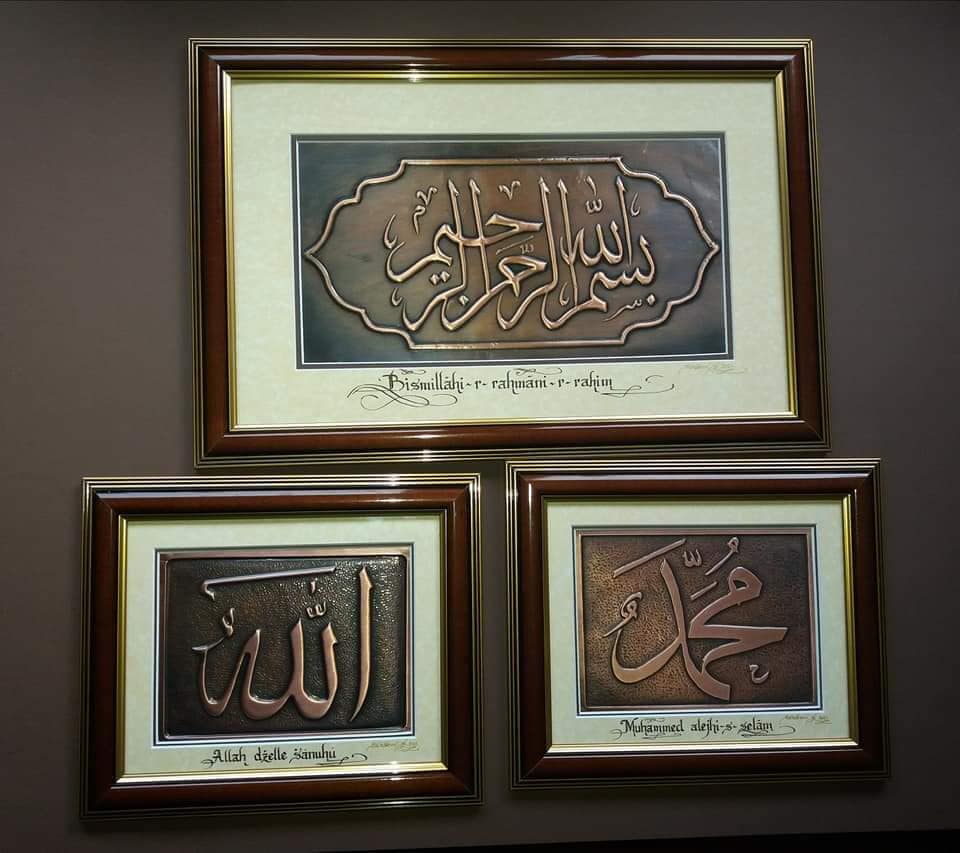 بسم الله الرحمن الرحيم
Bismillāhi-r-rahmāni-r-rahim
الله
Allah dželle šānuhū
محمد
Muhāmmed alejhi-s-selām